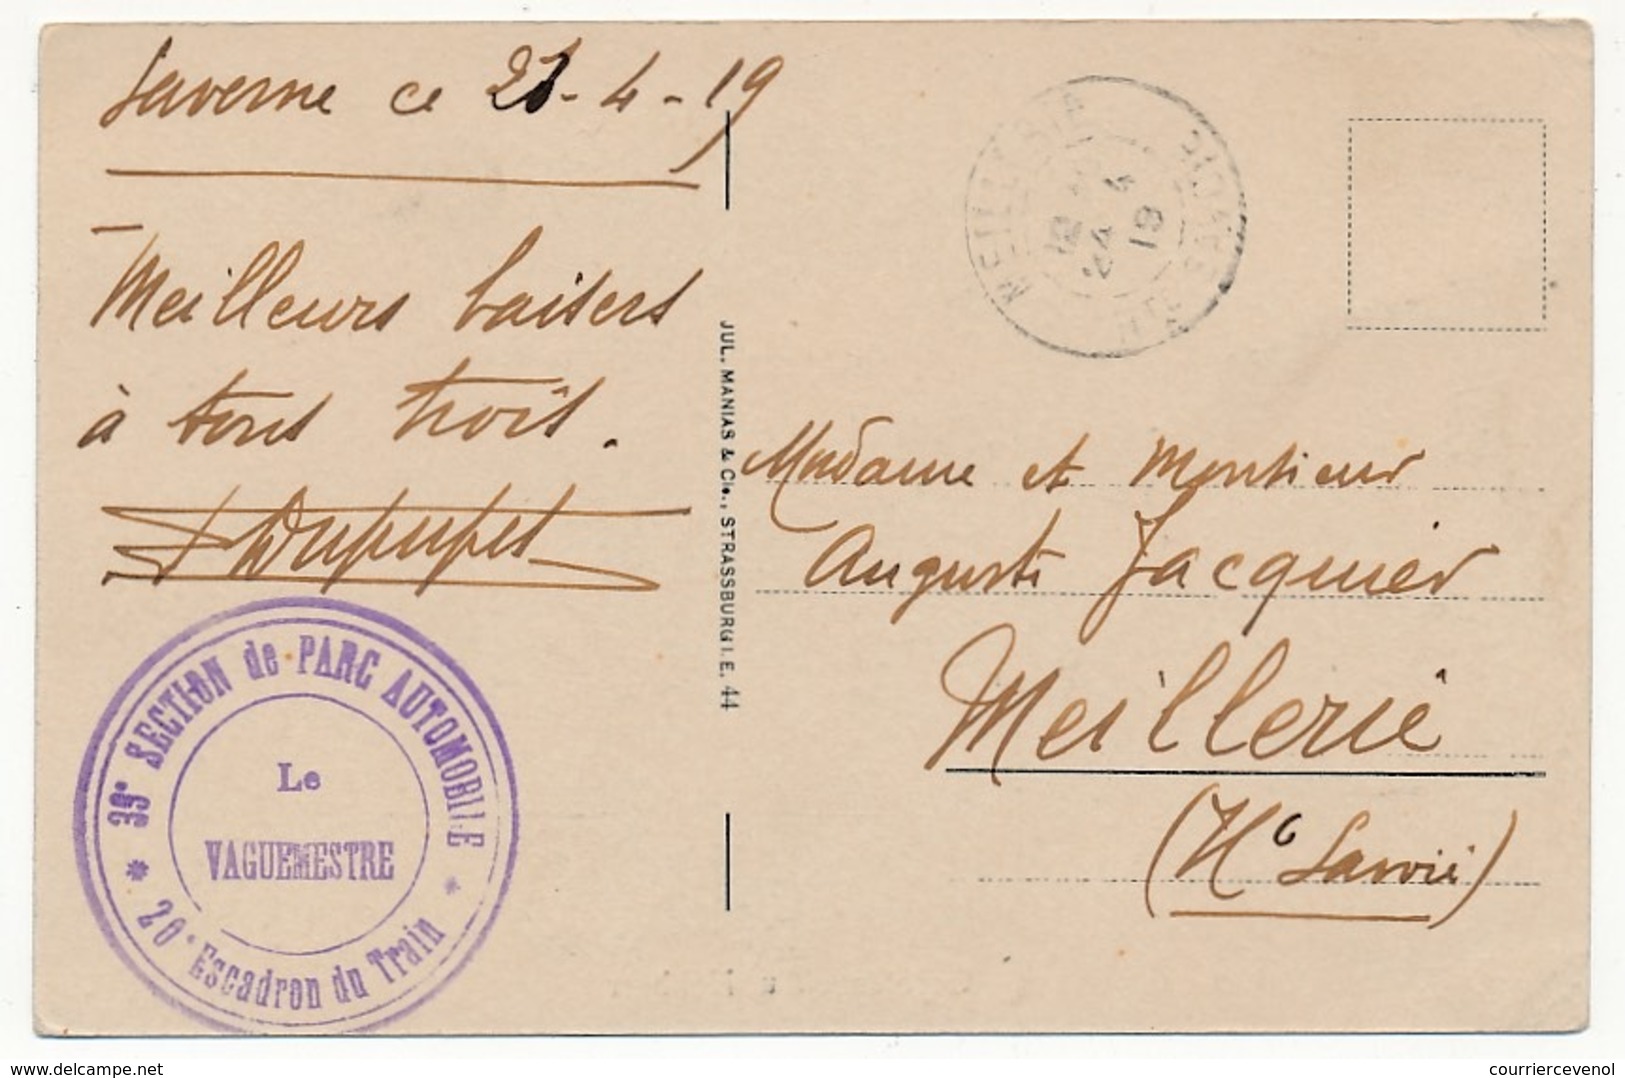 Saverne ce 21-4-19
Meilleurs baisers
à tous trois.
JUL. MANIAS & Cie., STRASSBURG I. E. 44
MEILLERIE
HTE SAVOIE
12
24
4
19
Madame et Monsieur
Auguste Jacquier
Meillerie
(Hte Savoie)
39e SECTION de PARC AUTOMOBILE
Le
VAGUEMESTRE
* 20e Escadron du Train *
www.delcampe.net
courriercevenol